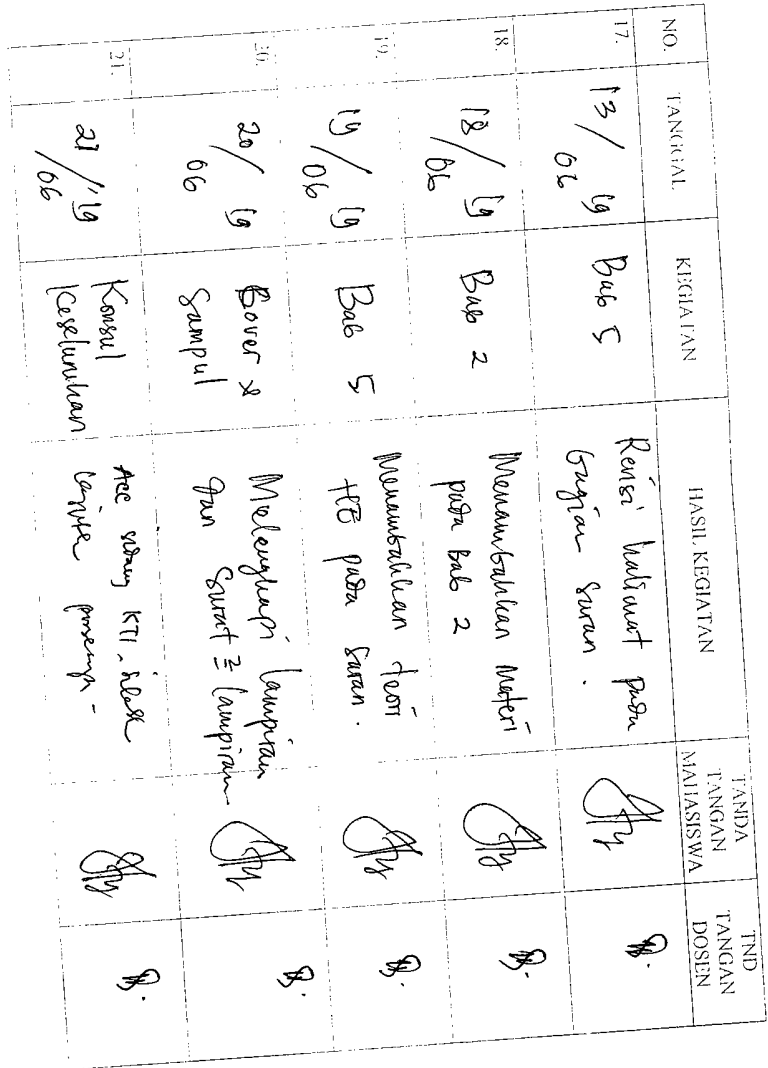 NO.
TANGGAL
KEGIATAN
HASIL KEGIATAN
TANDA
TANGAN
MAHASISWA
TND
TANGAN
DOSEN
17.
13/06 19
Bab 5
Revisi kalimat pada
bagian saran.
18.
18/06 19
Bab 2
Menambahkan Materi
pada Bab 2
19.
19/06 19
Bab 5
Menambahkan teori
HE pada saran.
20.
20/06 19
Cover &
Sampul
Melengkapi lampiran
dan Surat ² lampiran
21.
21/06 '19
Konsul
Keseluruhan
Acc sidang KTI,